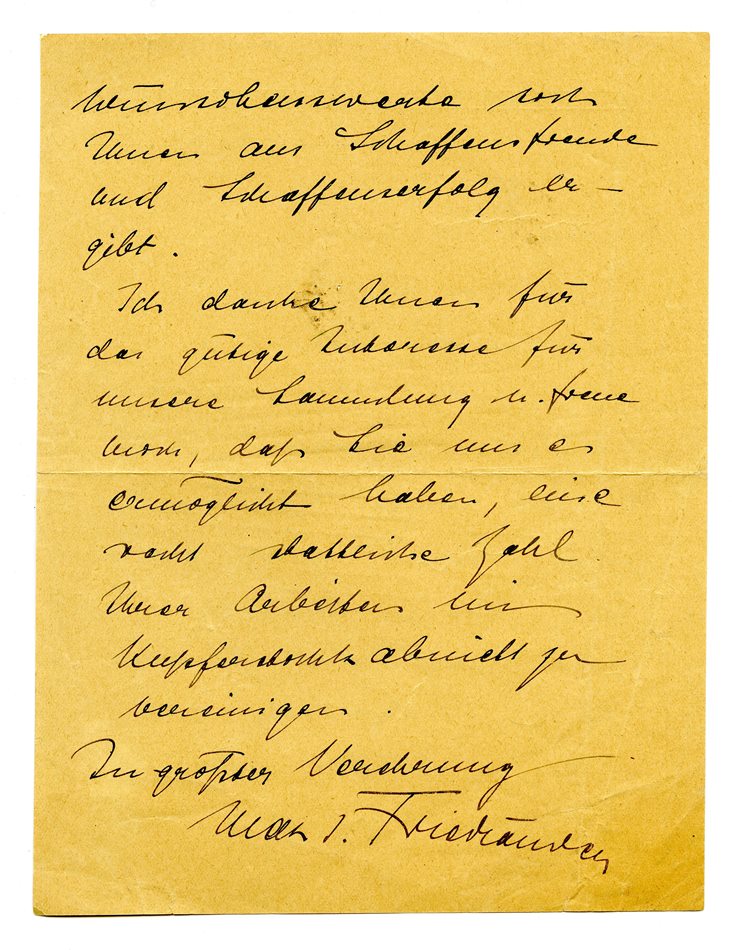 Wünschenswerte sich
Ihnen aus Schaffensfreude
und Schaffenserfolg er-
gibt.
Ich danke Ihnen für
das gütige Interesse für
unsere Sammlung u. freue
mich, daß Sie uns es
ermöglicht haben, eine
recht stattliche Zahl
Ihrer Arbeiten im
Kupferstichkabinett zu
vereinigen.
In größter Verehrung
Max J. Friedländer